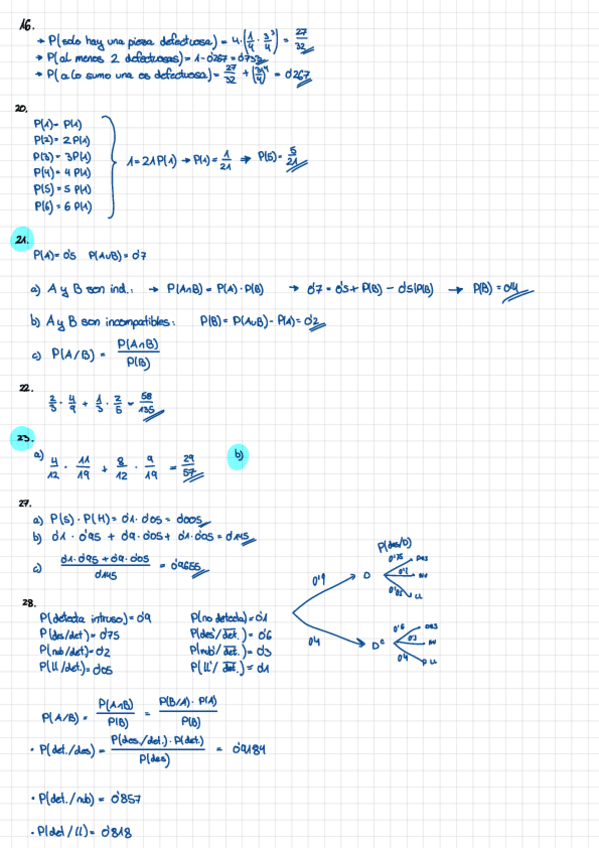 16.
→ P(solo hay una pieza defectuosa) = 4·(1/4 · 3³/4) = 27/32
→ P(al menos 2 defectuosas) = 1 - 0'267 = 0'733
→ P(a lo sumo una es defectuosa) = 27/32 + (3/4)⁴ = 0'267
20.
P(1) = P(1)
P(2) = 2P(1)
P(3) = 3P(1)
P(4) = 4P(1)
P(5) = 5P(1)
P(6) = 6P(1)
1 = 21P(1) → P(1) = 1/21 → P(5) = 5/21
21.
P(A) = 0'5 P(A∪B) = 0'7
a) A y B son ind.: → P(A∩B) = P(A)·P(B) → 0'7 = 0'5 + P(B) - 0'5(P(B) → P(B) = 0'4
b) A y B son incompatibles: P(B) = P(A∪B) - P(A) = 0'2
c) P(A/B) = P(A∩B)/P(B)
22.
2/3 · 4/9 + 1/3 · 2/5 = 58/135
23.
a) 4/12 · 11/19 + 8/12 · 9/19 = 29/57
b)
27.
a) P(S)·P(H) = 0'1·0'05 = 0'005
b) 0'1·0'95 + 0'9·0'05 + 0'1·0'05 = 0'145
c) 0'1·0'95 + 0'9·0'05 / 0'145 = 0'9655
28.
P(detecta intruso) = 0'9 P(no detecta) = 0'1
P(des/det) = 0'75 P(des/det.) = 0'6
P(nub/det) = 0'2 P(nub/det.) = 0'3
P(ll/det.) = 0'05 P(ll/det.) = 0'1
P(des/D)
0'9 D
0'75 DES
0'2 NU
0'05 LL
0'1 Dᶜ
0'6 DES
0'3 NU
0'1 LL
P(A/B) = P(A∩B)/P(B) = P(B/A)·P(A)/P(B)
· P(det./des) = P(des./det.)·P(det.)/P(des) = 0'9184
· P(det./nub) = 0'857
· P(det/ll) = 0'818